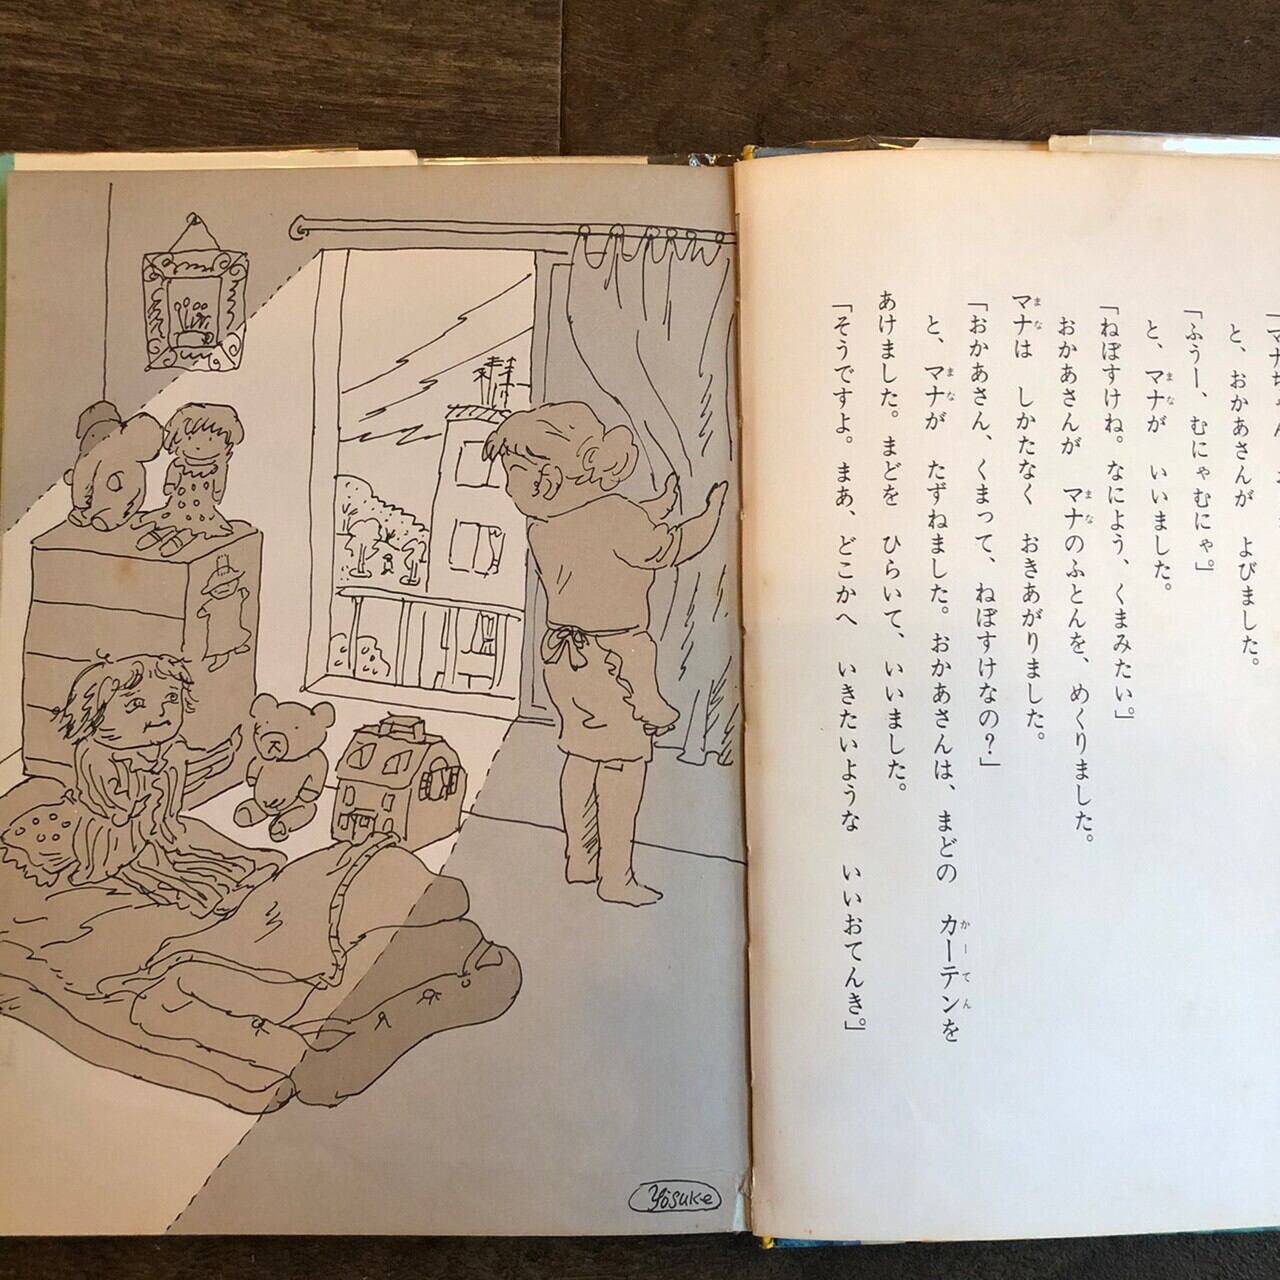 と、おかあさんが　よびました。
「ふうー、むにゃむにゃ。」
と、マナが　いいました。
「ねぼすけね。なによう、くまみたい。」
おかあさんが　マナのふとんを、めくりました。
マナは　しかたなく　おきあがりました。
「おかあさん、くまって、ねぼすけなの？」
と、マナが　たずねました。おかあさんは、まどの　カーテンを
あけました。まどを　ひらいて、いいました。
「そうですよ。まあ、どこかへ　いきたいような　いいおてんき。」
Yôsuke